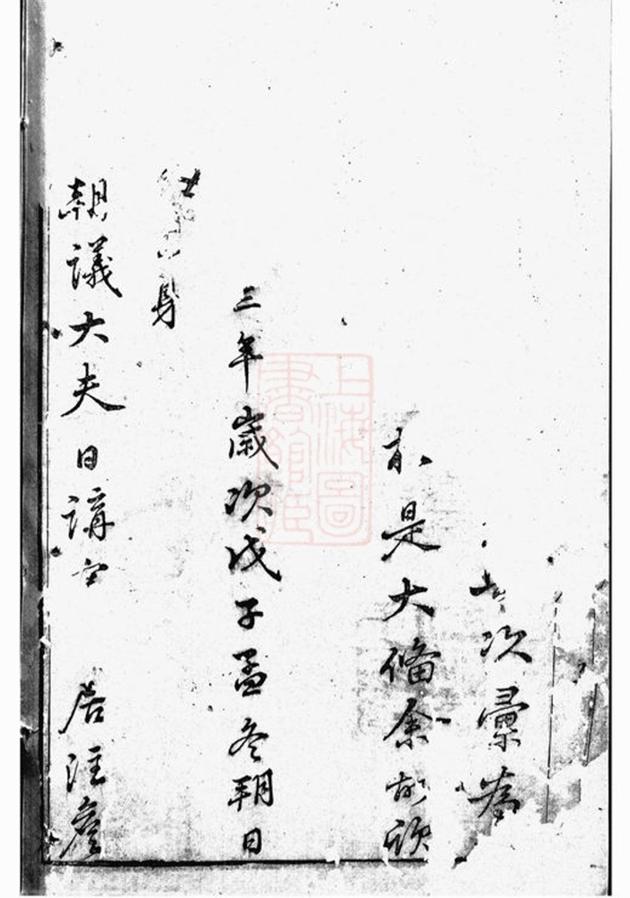 次彙為
於是大備余故欣
三年歲次戊子孟冬朔日
身
朝議大夫日講官 居注詹
上海圖書館藏